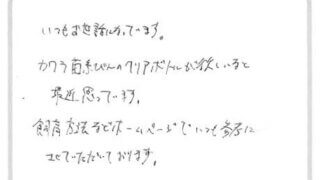 いつもお世話になっています。
カワラ菌糸びんのクリアボトルが欲しいと
最近思っています。
飼育方法などホームページでいつも参考に
させていただいております。